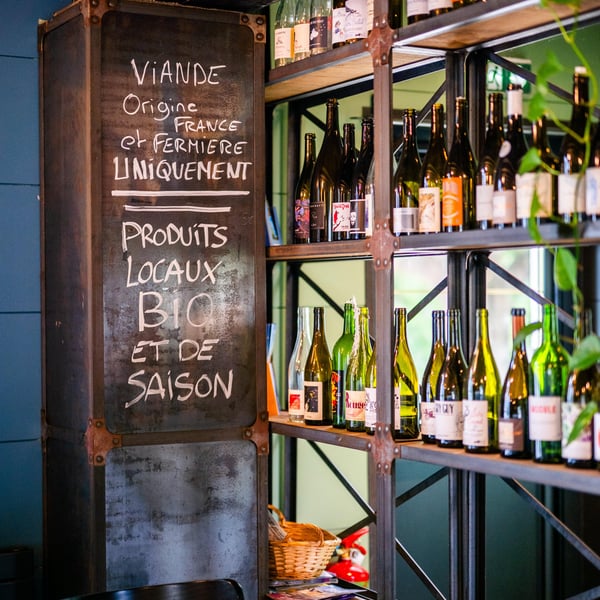 ViANDE
Origine
FRANCE
et FERMIERE
UNIQUEMENT
PRODUITS
LOCAUX
BIO
ET DE
SAISON